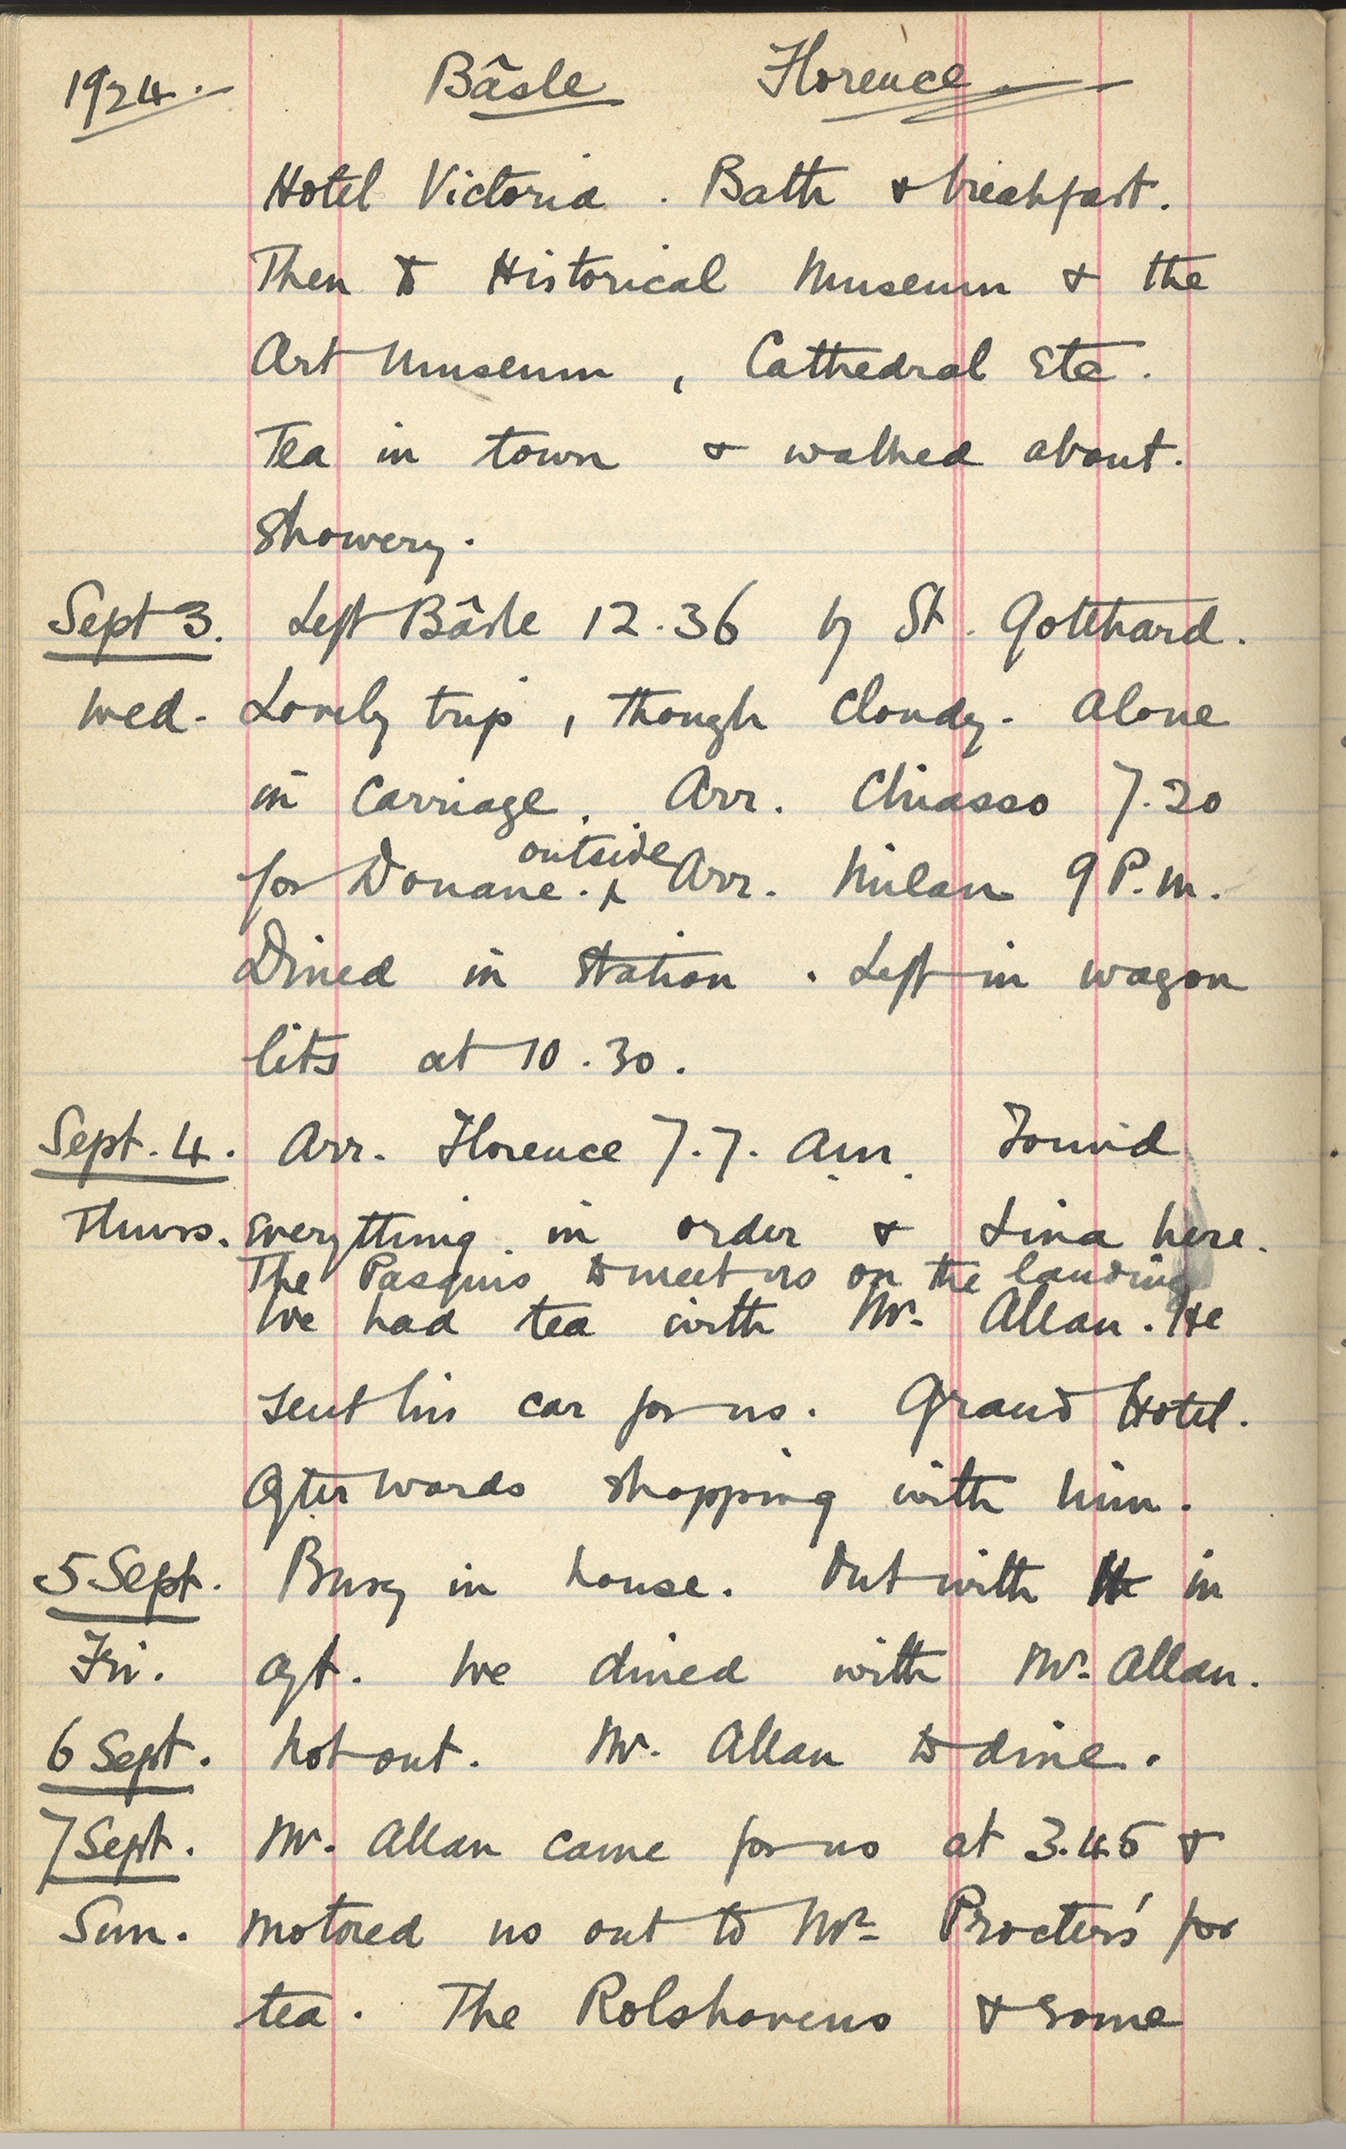 1924. Bâsle Florence.
Hotel Victoria. Bath & breakfast.
Then to Historical Museum & the
Art Museum, Cathedral Etc.
Tea in town & walked about.
Showery.
Sept 3. Left Bâsle 12.36 by St. Gotthard.
Wed. Lovely trip, though cloudy. Alone
in carriage. Arr. Chiasso 7.20
outside
for Douane. & Arr. Milan 9 P.m.
Dined in station. Left in wagon
lits at 10.30.
Sept. 4. Arr. Florence 7.7. am. Found
Thurs. everything in order & Lina here.
The Pasquis to meet us on the landing
We had tea with Mr. Allan. He
sent his car for us. Grand Hotel.
Afterwards shopping with him.
5 Sept. Busy in house. Out with H in
Fri. aft. We dined with Mr. Allan.
6 Sept. Not out. Mr. Allan to dine.
7 Sept. Mr. Allan came for us at 3.45 &
Sun. motored us out to Mrs Procters' for
tea. The Rolshovens & some